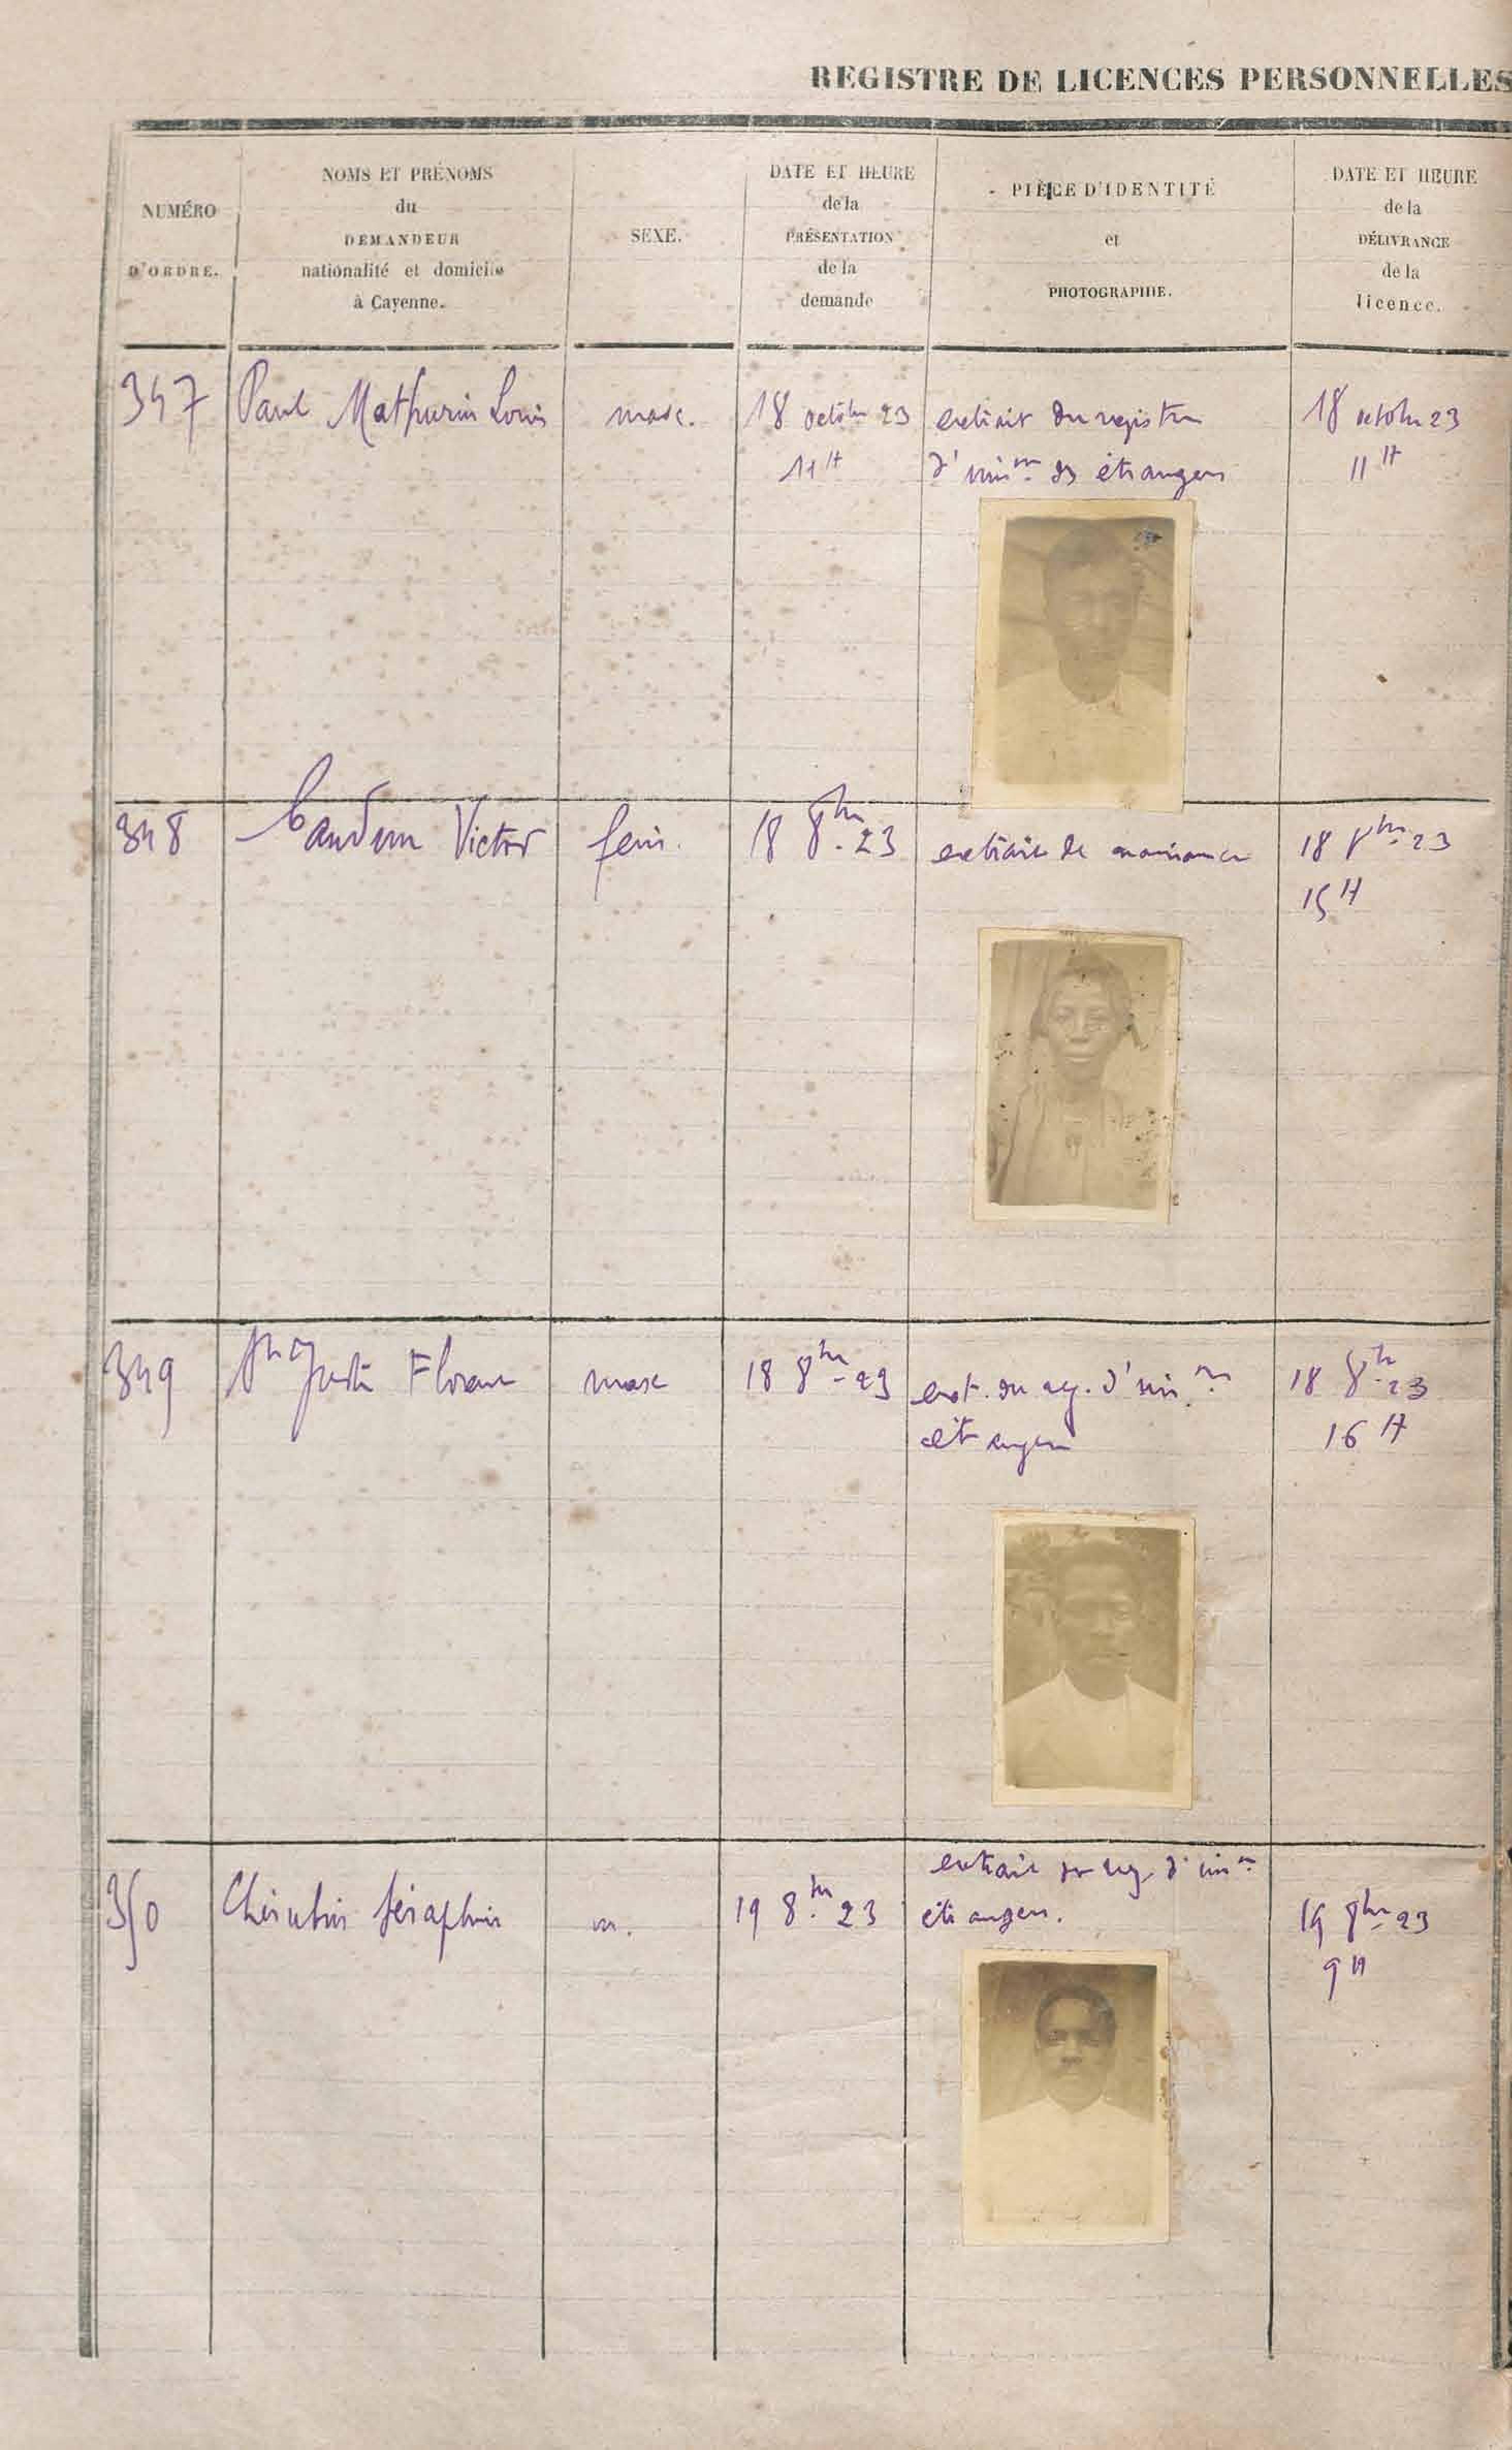 REGISTRE DE LICENCES PERSONNELLES
NUMÉRO
D'ORDRE.
NOMS ET PRÉNOMS
du
DEMANDEUR
nationalité et domicile
à Cayenne.
SEXE.
DATE ET HEURE
de la
PRÉSENTATION
de la
demande
PIÈCE D'IDENTITÉ
et
PHOTOGRAPHIE.
DATE ET HEURE
de la
DÉLIVRANCE
de la
licence.
347 Paul Mathurin Louis masc. 18 octobre 23 extrait du registre 18 octobre 23
11 H d'imm.on des étrangers 11 H
348 Victor fem. 18 8bre 23 extrait de naissance 18 8bre 23
15 H
349 St Juste masc 18 8bre 23 ext. du reg. d'im.on 18 8bre 23
étrangers 16 H
extrait du reg. d'imm
350 Chérubin Séraphin m. 19 8bre 23 étrangers. 19 8bre 23
9 H